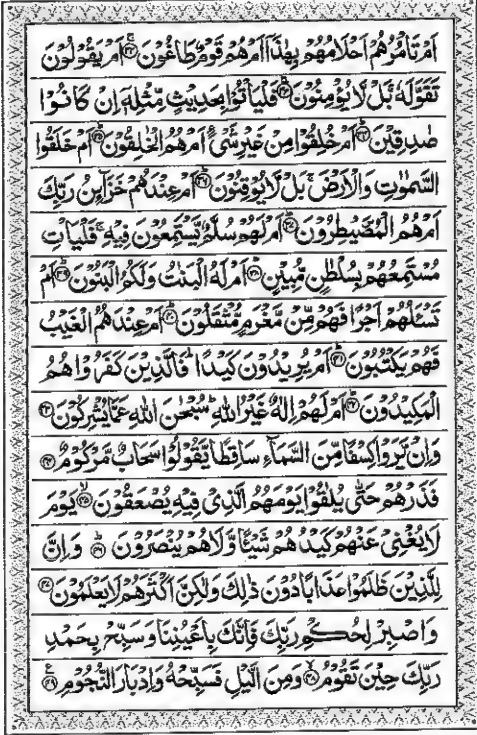 اَمْ تَاْمُرُهُمْ اَحْلَامُهُمْ بِهٰذَآ اَمْ هُمْ قَوْمٌ طَاغُوْنَ ۚ‏﴿۳۲﴾ اَمْ يَقُوْلُوْنَ
تَقَوَّلَهٗ ۚ بَلْ لَّا يُؤْمِنُوْنَ ۚ‏﴿۳۳﴾ فَلْيَاْتُوْا بِحَدِيْثٍ مِّثْلِهٖۤ اِنْ كَانُوْا
صٰدِقِيْنَ ؕ‏﴿۳۴﴾ اَمْ خُلِقُوْا مِنْ غَيْرِ شَىْءٍ اَمْ هُمُ الْخٰلِقُوْنَ ؕ‏﴿۳۵﴾ اَمْ خَلَقُوا
السَّمٰوٰتِ وَالْاَرْضَ ۚ بَلْ لَّا يُوْقِنُوْنَ ؕ‏﴿۳۶﴾ اَمْ عِنْدَهُمْ خَزَآئِنُ رَبِّكَ
اَمْ هُمُ الْمُصَۜيْطِرُوْنَ ؕ‏﴿۳۷﴾ اَمْ لَهُمْ سُلَّمٌ يَّسْتَمِعُوْنَ فِيْهِ ۚ فَلْيَاْتِ
مُسْتَمِعُهُمْ بِسُلْطٰنٍ مُّبِيْنٍ ؕ‏﴿۳۸﴾ اَمْ لَهُ الْبَنٰتُ وَلَكُمُ الْبَنُوْنَ ؕ‏﴿۳۹﴾ اَمْ
تَسْـَٔلُهُمْ اَجْرًا فَهُمْ مِّنْ مَّغْرَمٍ مُّثْقَلُوْنَ ؕ‏﴿۴۰﴾ اَمْ عِنْدَهُمُ الْغَيْبُ
فَهُمْ يَكْتُبُوْنَ ؕ‏﴿۴۱﴾ اَمْ يُرِيْدُوْنَ كَيْدًا ؕ فَالَّذِيْنَ كَفَرُوْا هُمُ
الْمَكِيْدُوْنَ ؕ‏﴿۴۲﴾ اَمْ لَهُمْ اِلٰهٌ غَيْرُ اللّٰهِ ؕ سُبْحٰنَ اللّٰهِ عَمَّا يُشْرِكُوْنَ ‏﴿۴۳﴾
وَاِنْ يَّرَوْا كِسْفًا مِّنَ السَّمَآءِ سَاقِطًا يَّقُوْلُوْا سَحَابٌ مَّرْكُوْمٌ ‏﴿۴۴﴾
فَذَرْهُمْ حَتّٰى يُلٰقُوْا يَوْمَهُمُ الَّذِىْ فِيْهِ يُصْعَقُوْنَ ۙ‏﴿۴۵﴾ يَوْمَ
لَا يُغْنِىْ عَنْهُمْ كَيْدُهُمْ شَيْـًٔا وَّلَا هُمْ يُنْصَرُوْنَ ؕ‏﴿۴۶﴾ وَاِنَّ
لِلَّذِيْنَ ظَلَمُوْا عَذَابًا دُوْنَ ذٰلِكَ وَلٰكِنَّ اَكْثَرَهُمْ لَا يَعْلَمُوْنَ ‏﴿۴۷﴾
وَاصْبِرْ لِحُكْمِ رَبِّكَ فَاِنَّكَ بِاَعْيُنِنَا وَسَبِّحْ بِحَمْدِ
رَبِّكَ حِيْنَ تَقُوْمُ ۙ‏﴿۴۸﴾ وَمِنَ الَّيْلِ فَسَبِّحْهُ وَاِدْبَارَ النُّجُوْمِ ‏﴿۴۹﴾ ع